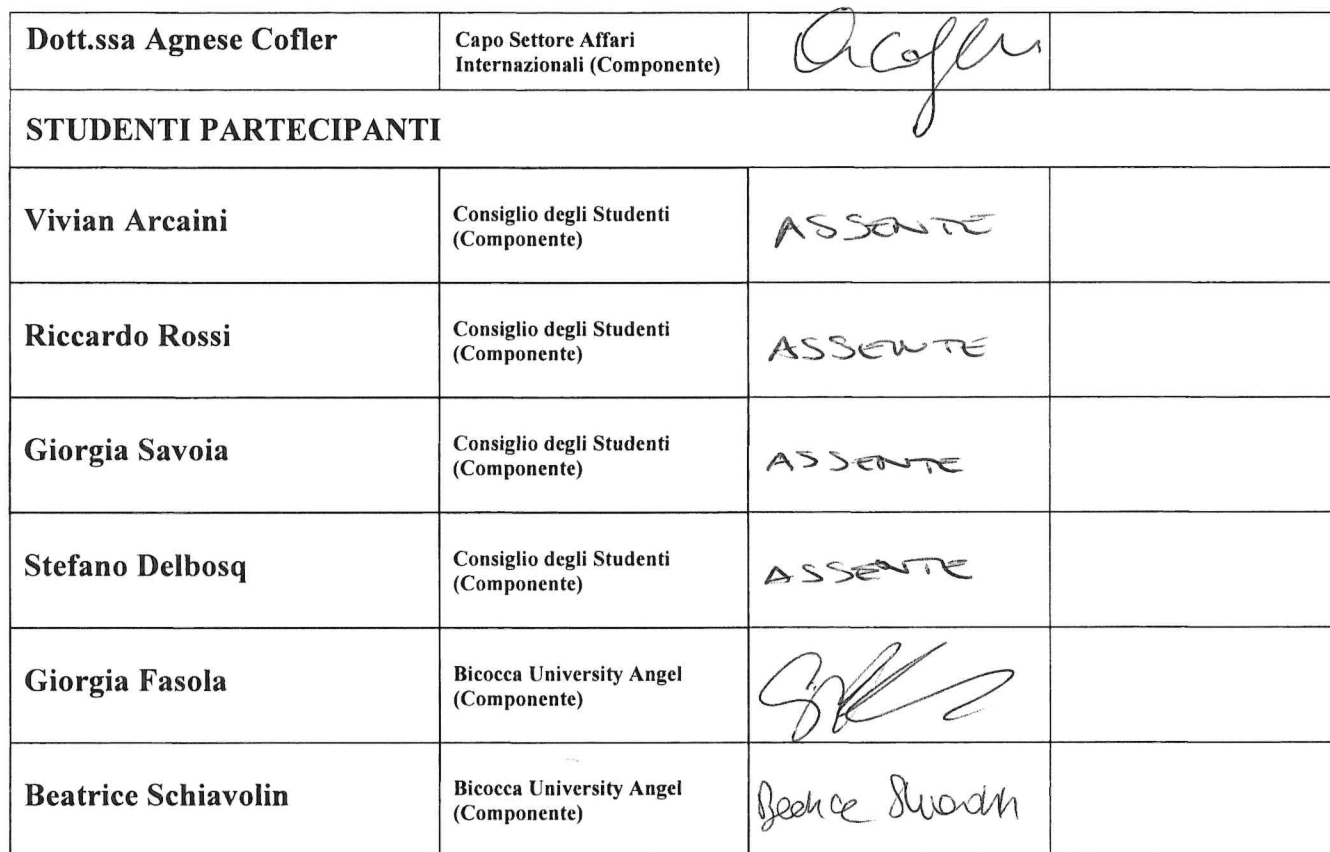 Dott.ssa Agnese Cofler
Capo Settore Affari
Internazionali (Componente)
STUDENTI PARTECIPANTI
Vivian Arcaini
Consiglio degli Studenti
(Componente)
ASSENTE
Riccardo Rossi
Consiglio degli Studenti
(Componente)
ASSENTE
Giorgia Savoia
Consiglio degli Studenti
(Componente)
ASSENTE
Stefano Delbosq
Consiglio degli Studenti
(Componente)
ASSENTE
Giorgia Fasola
Bicocca University Angel
(Componente)
Beatrice Schiavolin
Bicocca University Angel
(Componente)